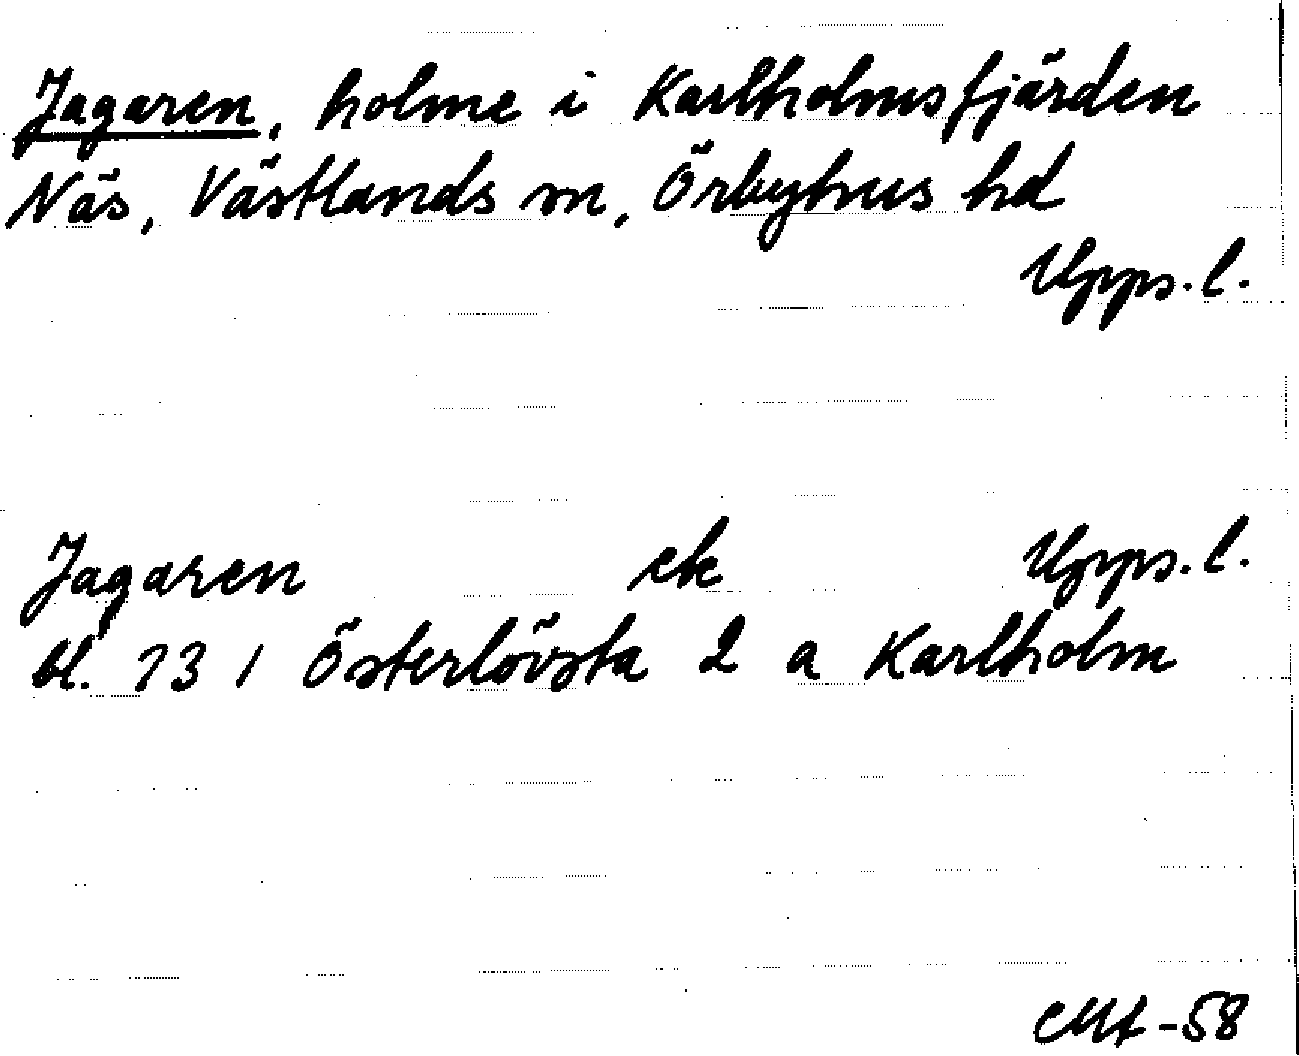 Jagaren, holme i Karlholmsfjärden
Näs, Västlands sn, Örbyhus hd
Upps. l.
Jagaren ek Upps. l.
bl. 73 1 Österlövsta 2 a Karlholm
-58